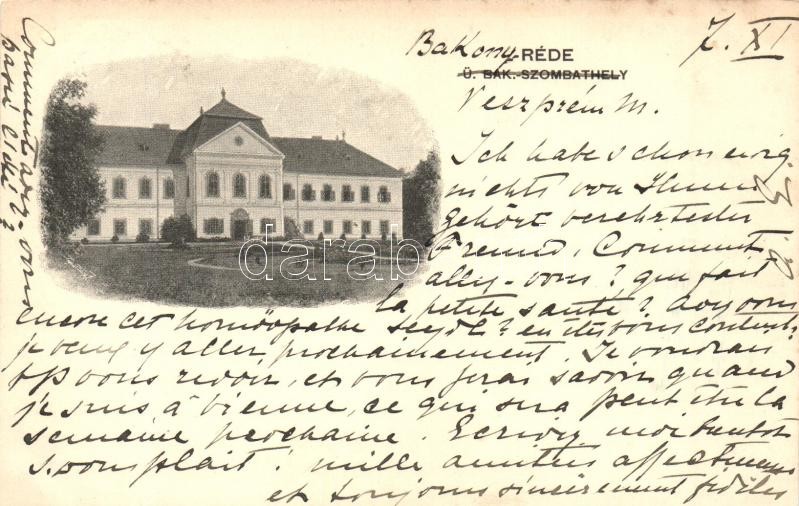 Bakony-RÉDE 7. XI
Ü. BAK.-SZOMBATHELY
Veszprém M.
Ich habe schon ewig
nichts von Ihnen
gehört verehrtester
Freund. Comment
allez-vous? qui fait
la petite santé? avez vous
encore cet homöopathe
je veux y aller prochainement. Je voudrais
vous revoir, et vous ferai savoir quand
je suis à Vienne, ce qui sera peut être la
semaine prochaine. Ecrivez moi bientôt
s. vous plait! mille amitiés
et toujours sincèrement fidèles
Comment avez-vous
passé l'été
darabanth